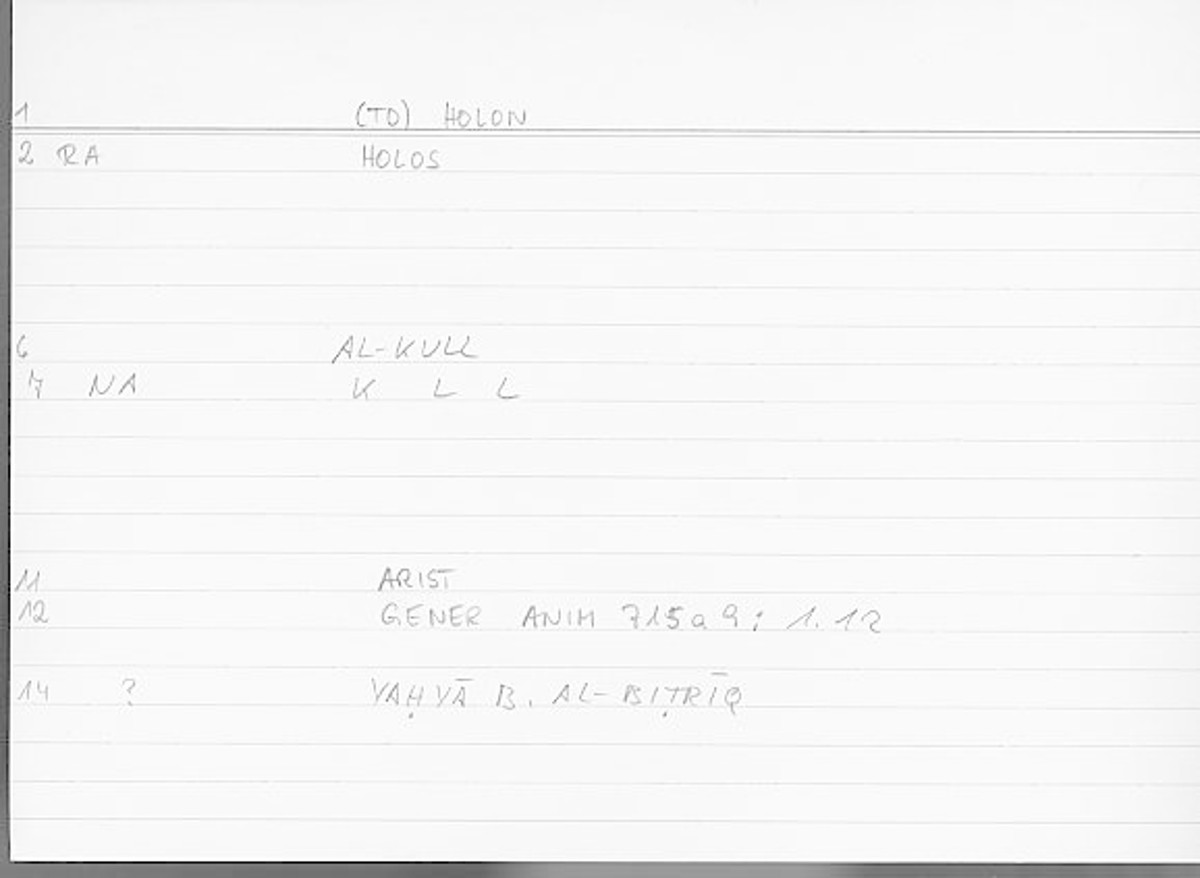 1 (TO) HOLON
2 RA HOLOS
6 AL-KULL
7 NA K L L
11 ARIST
12 GENER ANIM 715a9; 1.12
14 ? YAḤYĀ B. AL-BIṬRĪQ